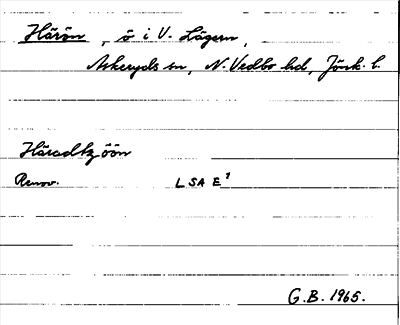 Härön, ö i V. Lägern,
Askeryds sn, N. Vedbo hd, Jönk. l.
Häradtz öön
Renov. LSA E¹
G.B. 1965.